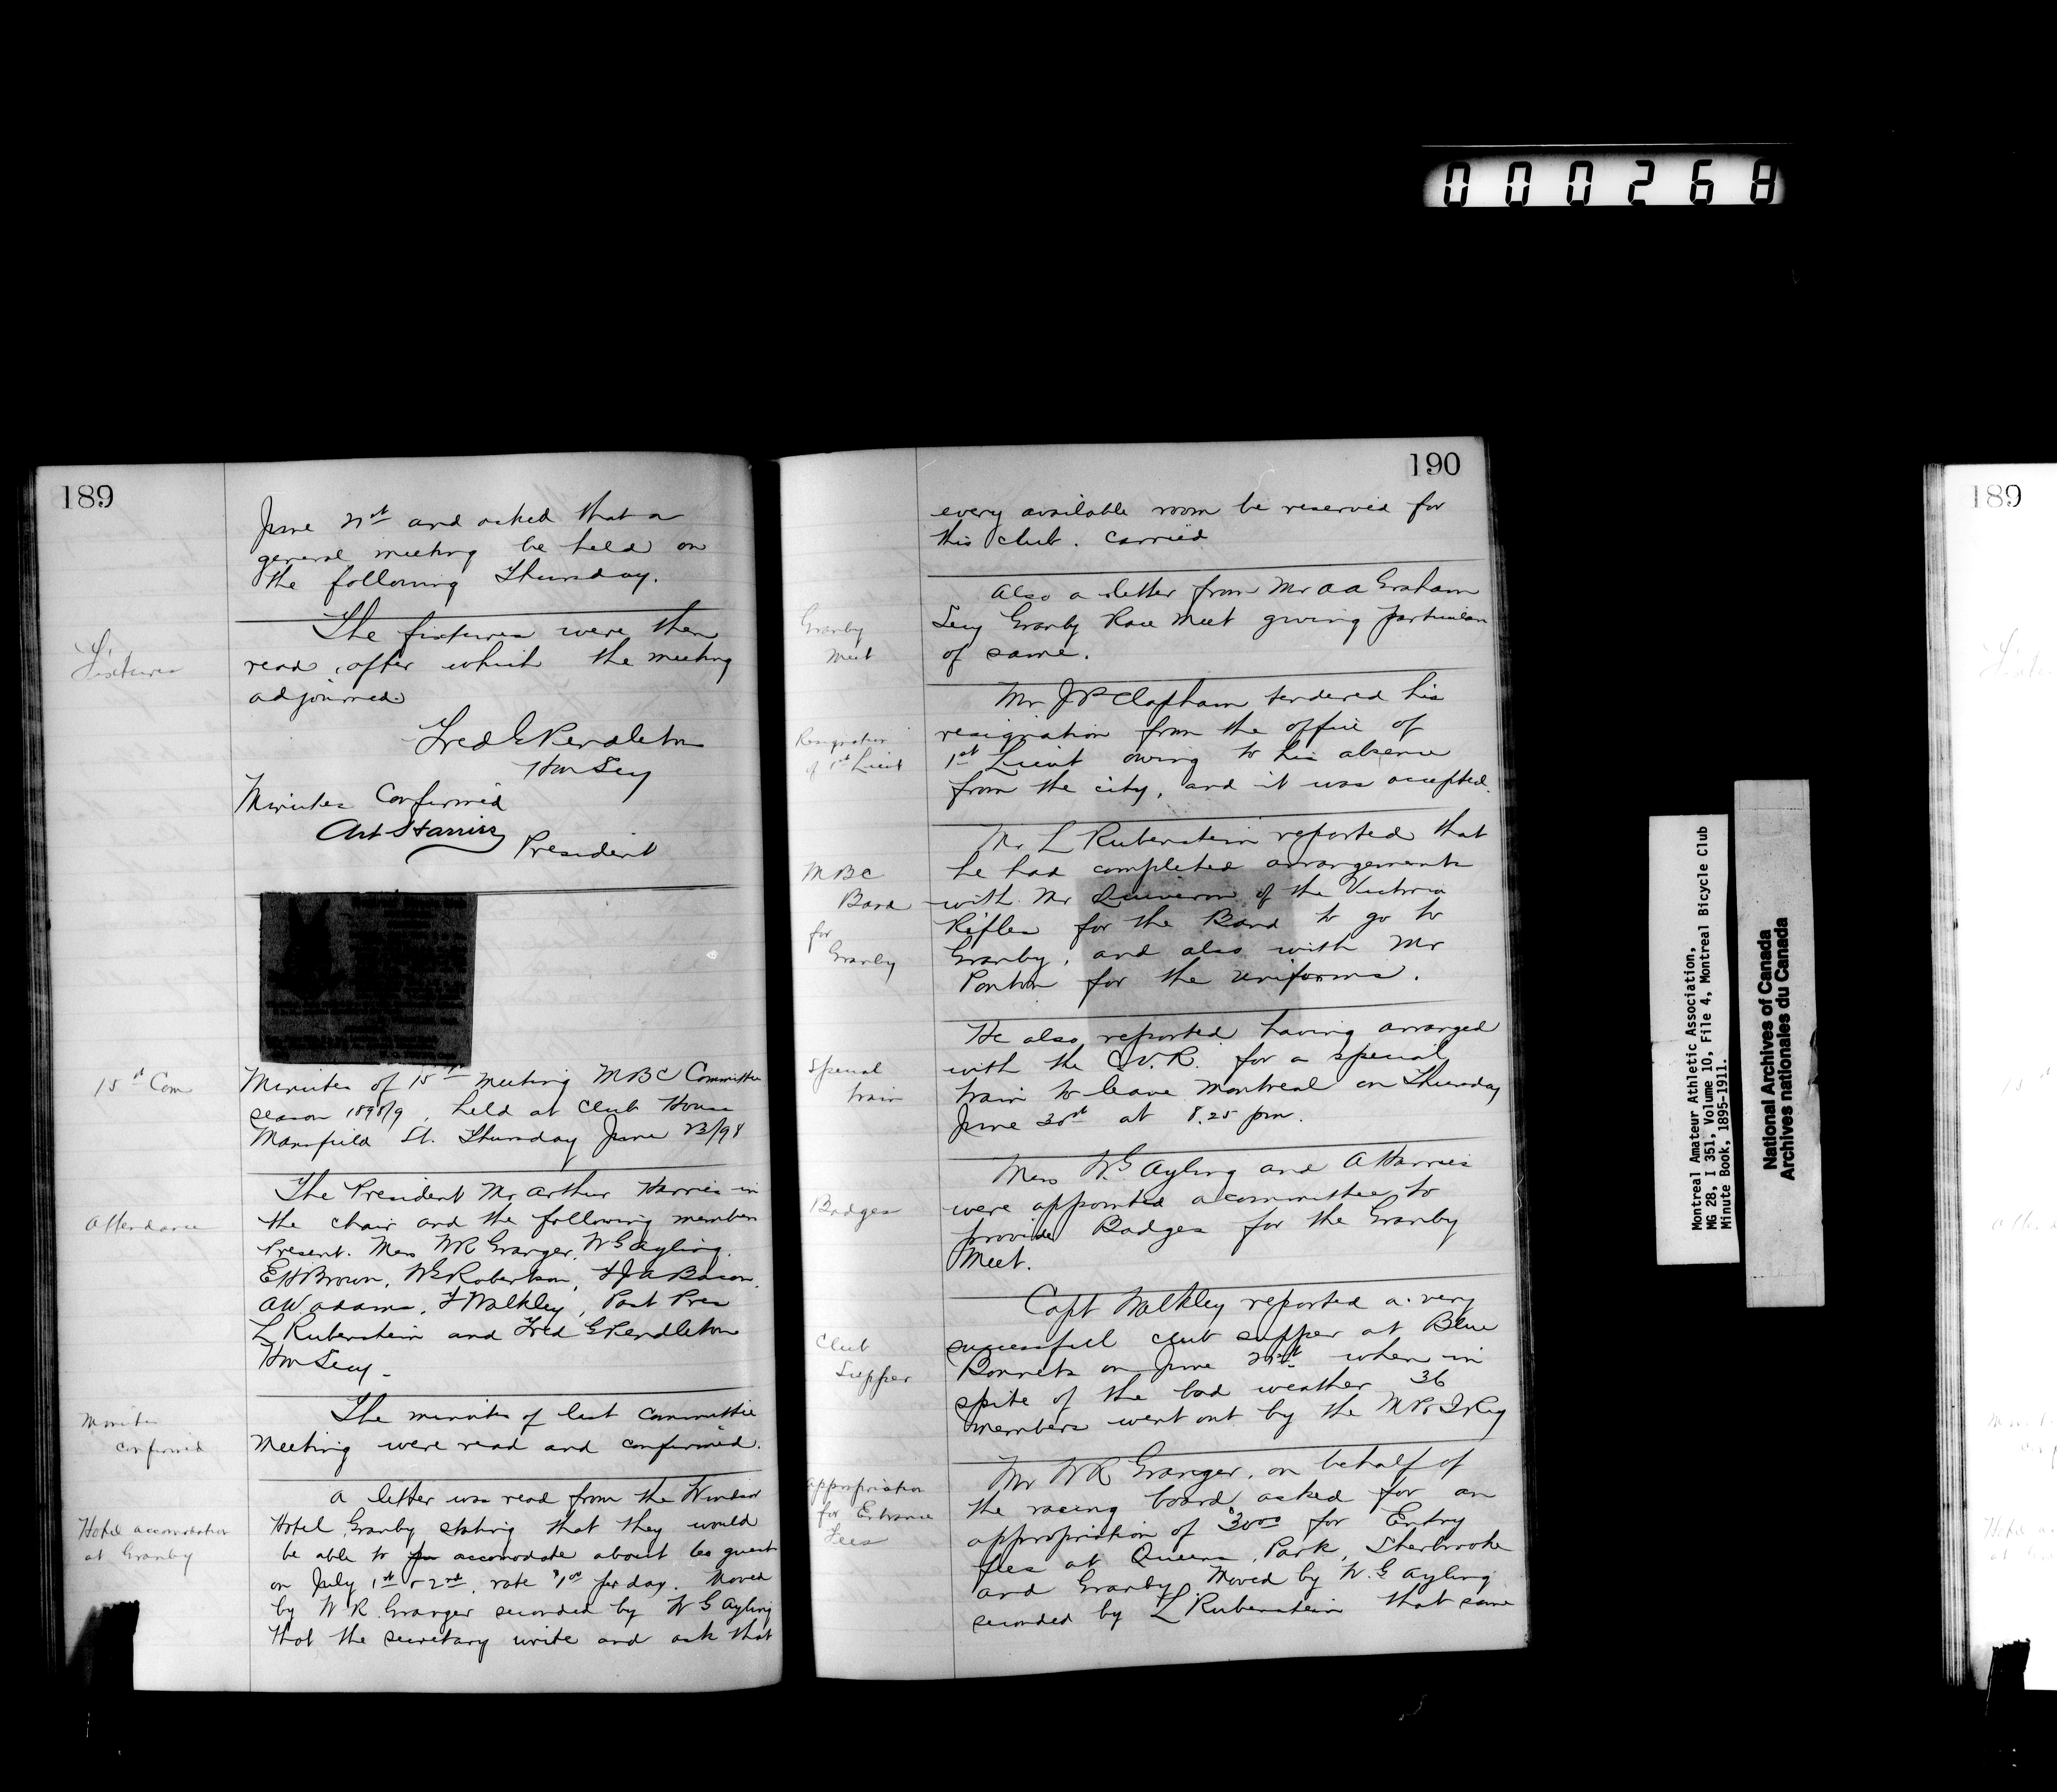 000268
189
June 21st and asked that a
general meeting be held on
the following Thursday.
Fixtures
The fixtures were then
read, after which the meeting
adjourned.
Fred G Pendleton
Hon Secy
Minutes Confirmed
Art Harries
President
15th Com
Minutes of 15th meeting MBC Committee
season 1898/9, held at Club House
Mansfield St. Thursday June 23/98
Attendance
The President Mr Arthur Harries in
the chair and the following members
Present. Mess WR Granger, WG Ayling,
EH Brown, WG Robertson, FJA Bacon,
AW Adams, F Walkley, Past Pres
L Rubenstein and Fred G Pendleton
Hon Secy.
Minutes
confirmed
The minutes of last committee
meeting were read and confirmed.
Hotel accomodation
at Granby
A letter was read from the Windsor
Hotel Granby stating that they would
be able to accomodate about 60 guests
on July 1st & 2nd, rate $1.00 per day. Moved
by W R Granger seconded by W G Ayling
that the secretary write and ask that
190
every available room be reserved for
this club. Carried
Granby
Meet
Also a letter from Mr AA Graham
Secy Granby Race Meet giving particulars
of same.
Resignation
of 1st Lieut
Mr JP Clapham tendered his
resignation from the office of
1st Lieut owing to his absence
from the city, and it was accepted.
MBC
Band
for
Granby
Mr L Rubenstein reported that
he had completed arrangements
with Mr of the Victoria
Rifles for the Band to go to
Granby, and also with Mr
Ponton for the uniforms.
Special
train
He also reported having arranged
with the C.V.R. for a special
train to leave Montreal on Thursday
June 30th at 8.25 pm.
Badges
Mess W.G Ayling and A Harries
were appointed a committee to
provide Badges for the Granby
Meet.
Club
Supper
Capt Walkley reported a very
successfull club supper at Blue
Bonnets on June when in
spite of the bad weather 36
members went out by the
Appropriation
for Entrance
Fees
Mr WR Granger, on behalf of
the racing board asked for an
appropriation of $30.00 for Entry
fees at Queens Park, Sherbrooke
and Granby. Moved by W.G Ayling
seconded by L Rubenstein that same
Montreal Amateur Athletic Association,
MG 28, I 351, Volume 10, File 4, Montreal Bicycle Club
Minute Book, 1895-1911.
National Archives of Canada
Archives nationales du Canada
189